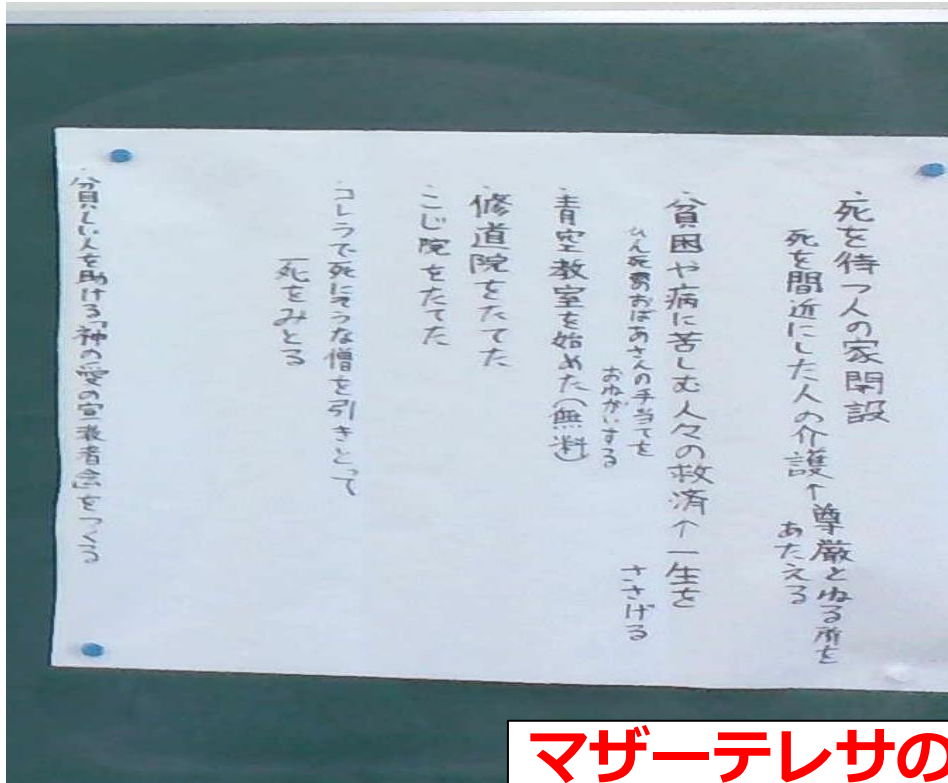 ・死を待つ人の家開設
死を間近にした人の介護↑尊厳とねる所を
あたえる
・貧困や病に苦しむ人々の救済↑一生を
ささげる
ひん死のおばあさんの手当てを
おねがいする
・青空教室を始めた(無料)
・修道院をたてた
・こじ院をたてた
・コレラで死にそうな僧を引きとって
死をみとる
・貧しい人を助ける「神の愛の宣教者会をつくる
マザーテレサの